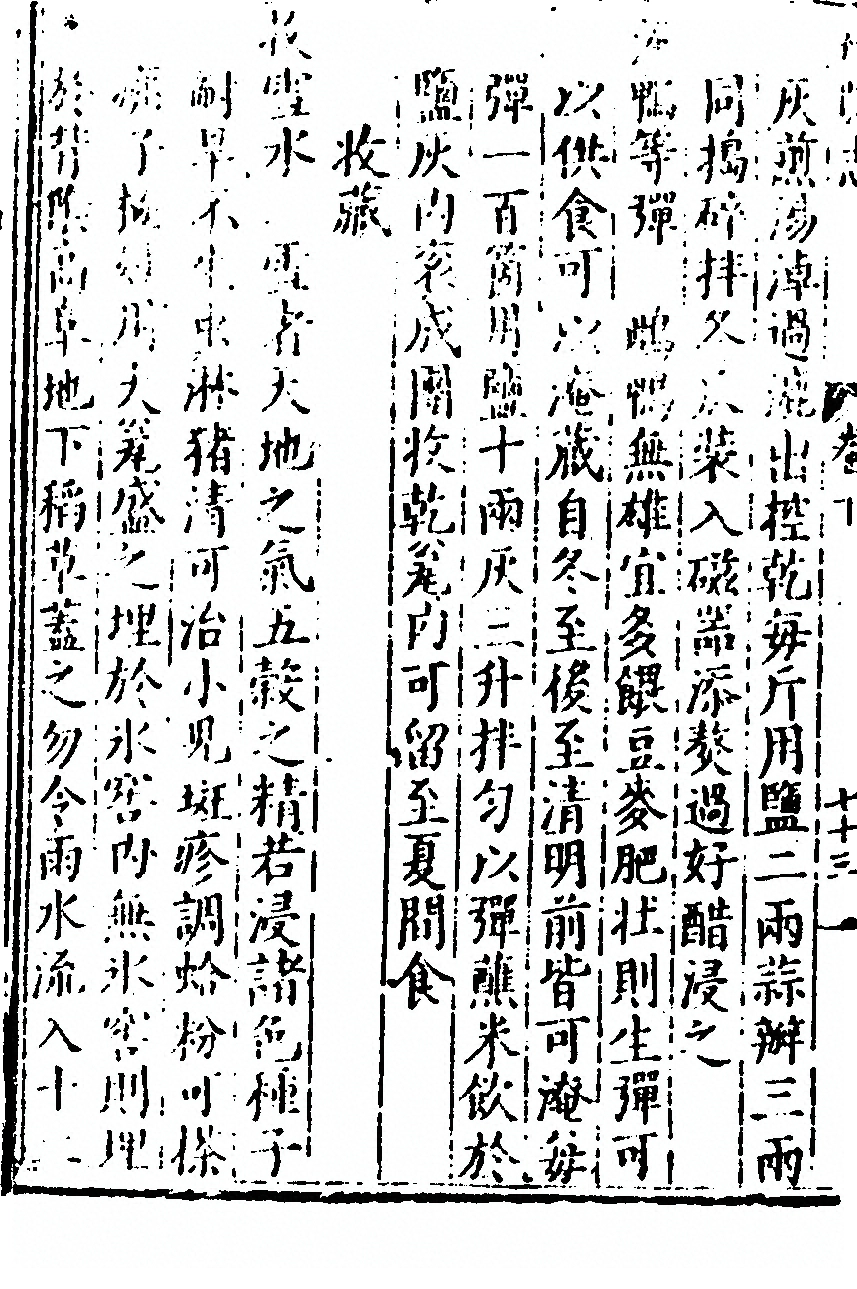 卷下 七十三
灰煎湯淖過漉出控乾每斤用鹽二兩蒜瓣三兩
同搗碎拌久 裝入磁器添熬過好醋浸之
鴨等彈 鴨無雄宜多餵豆麥肥壯則生彈可
以供食可以淹藏自冬至後至清明前皆可淹每
彈一百箇用鹽十兩灰三升拌勻以彈蘸米飲於
鹽灰內衮成團收乾瓮內可留至夏間食
收藏
收雪水 雪者天地之氣五穀之精若浸諸色種子
耐旱不生虫淋猪清可治小兒斑疹調蛤粉可搽
痱子 用大瓮盛之埋於氷窖內無氷窖則埋
於背陰高阜地下稻草蓋之勿令雨水流入十二